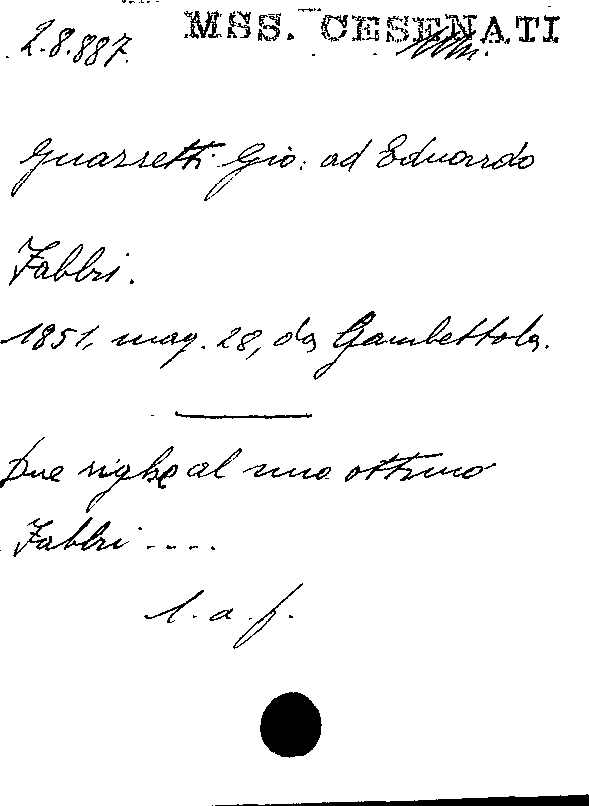 MSS. CESENATI
2.8.887.
Guazzetti Gio: ad Eduardo
Fabbri.
1851, mag. 28, da Gambettola.
Due righe al mio ottimo
Fabbri ....
l. a. f.